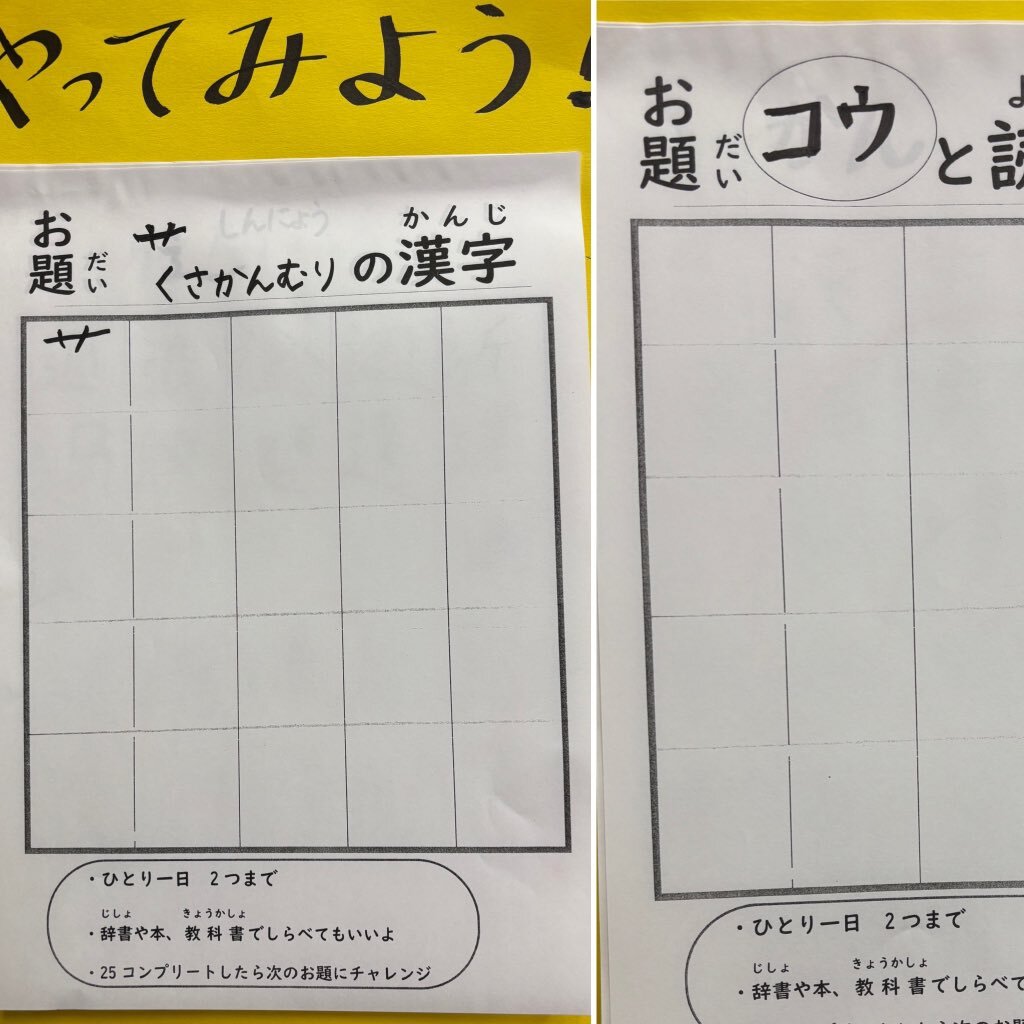 やってみよう!
お題 だい 艹 くさかんむり の漢字 かんじ
しんにょう
艹
・ひとり一日 2つまで
じしょ きょうかしょ
・辞書や本、教科書でしらべてもいいよ
・25コンプリートしたら次のお題にチャレンジ
お題 だい コウ と読
・ひとり一日 2つまで
じしょ きょうかしょ
・辞書や本、教科書でしらべて